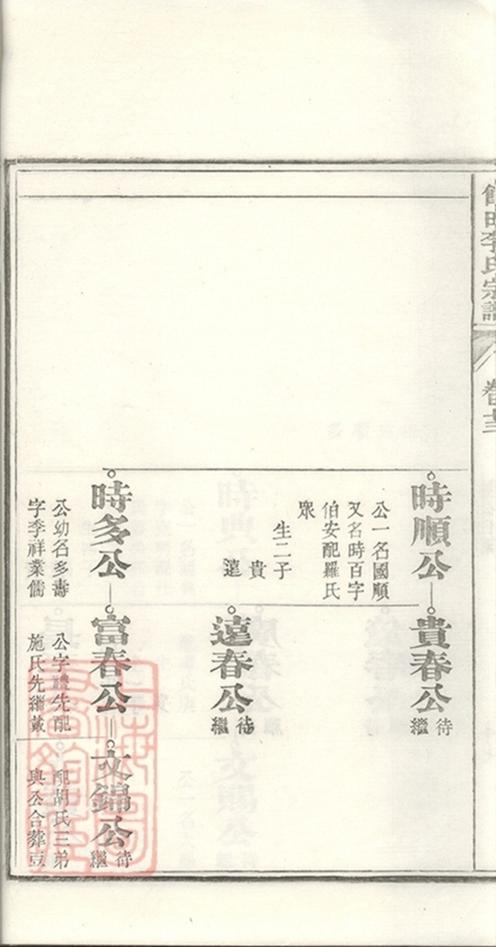 李氏宗譜
時順公
公一名國順
又名時百字
伯安配羅氏
眾
生二子
貴
遠
貴春公
待繼
遠春公
待繼
時多公
公幼名多壽
字季祥業儒
富春公
公字禮先配
施氏先繼戴
文錦公
待繼
配胡氏三弟
與公合葬豆